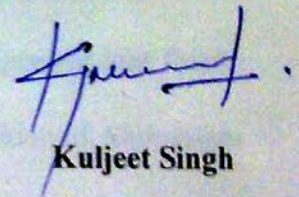 Kuljeet Singh